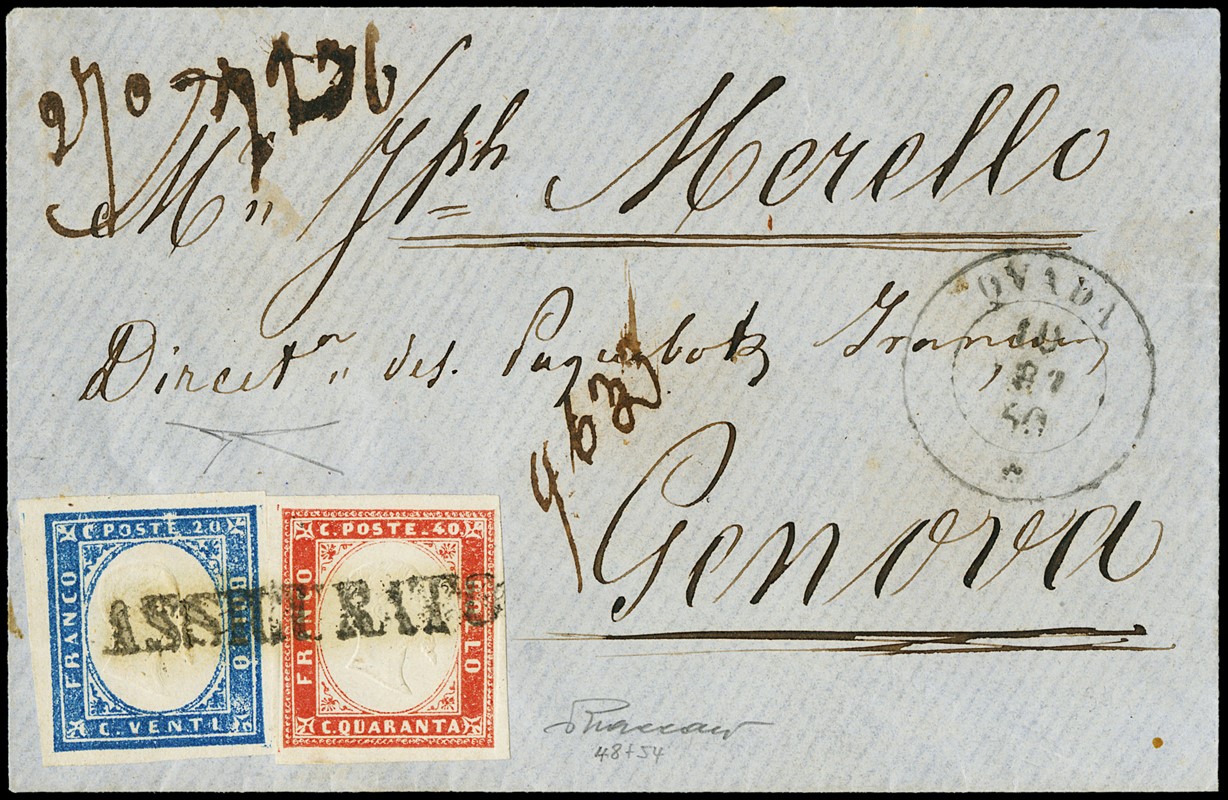 Mr Jph Merello
Direct.n des. Paquebots Français
9632
Genova
OVADA
10
60
C. POSTE 20
FRANCO
BOLLO
C. VENTI
C. POSTE 40
FRANCO
BOLLO
C. QUARANTA
ASSICURATO
48+54